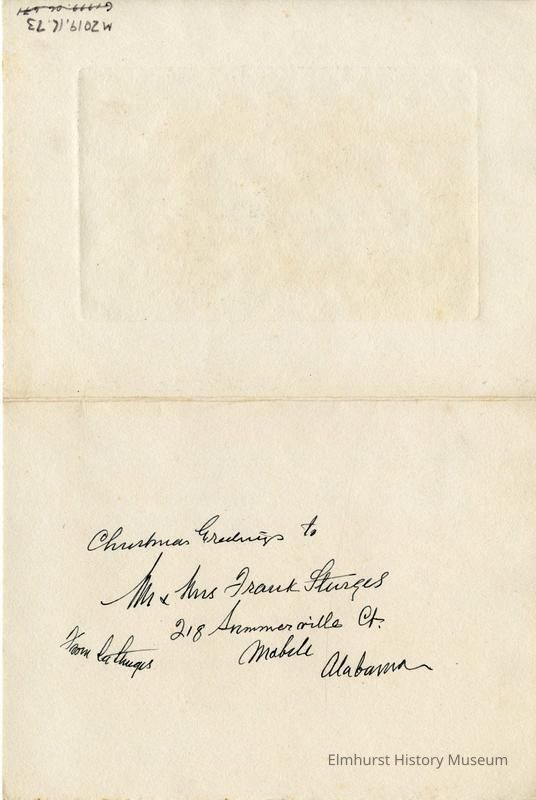 M2019.16.73
Christmas Greetings to
Mr & Mrs Frank Sturges
218 Summerville Ct.
Mobile
Alabama
From
Elmhurst History Museum